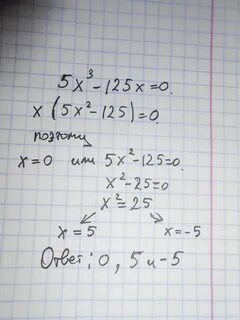 5x³-125x=0.
x(5x²-125)=0.
поэтому
x=0 или 5x²-125=0.
x²-25=0
x²=25
x=5 x=-5
Ответ: 0, 5 и -5